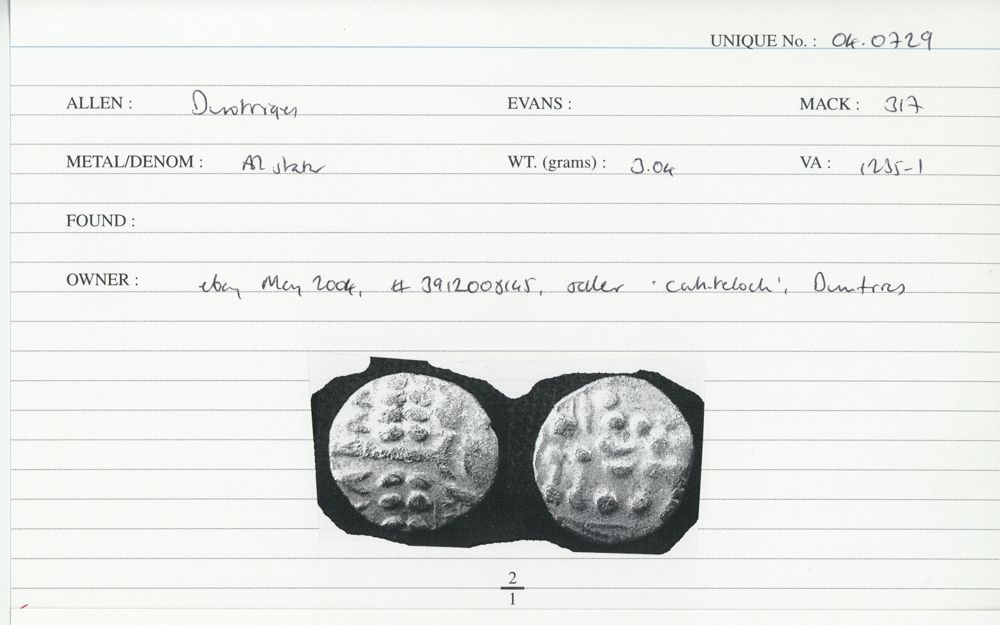 UNIQUE No. : 04.0729
ALLEN : Durotriges EVANS : MACK : 317
METAL/DENOM : AR stater WT. (grams) : 3.04 VA : 1235-1
FOUND :
OWNER : ebay May 2004, # 3912008145, seller
2
1